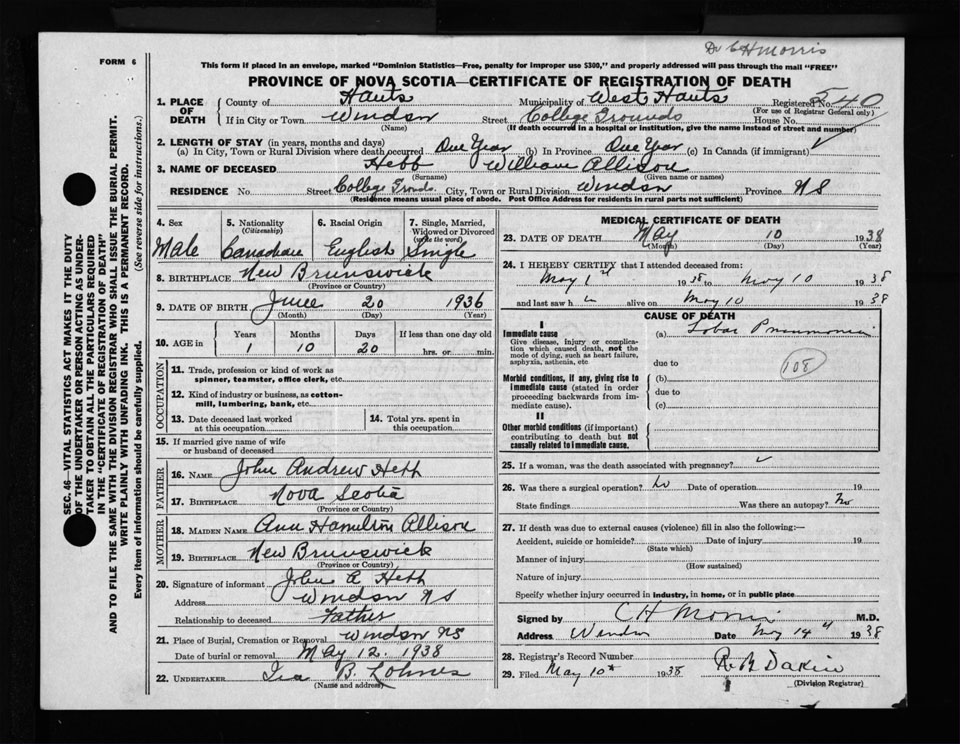 Dr C H Morris
FORM 6
This form if placed in an envelope, marked "Dominion Statistics—Free, penalty for improper use $300," and properly addressed will pass through the mail "FREE"
PROVINCE OF NOVA SCOTIA—CERTIFICATE OF REGISTRATION OF DEATH
1. PLACE OF DEATH
County of Hants Municipality of West Hants Registered No. 540
(For use of Registrar General only)
If in City or Town Windsor Street College Grounds House No.
(Name) (If death occurred in a hospital or institution, give the name instead of street and number)
2. LENGTH OF STAY (in years, months and days)
(a) In City, Town or Rural Division where death occurred One Year (b) In Province One Year (c) In Canada (if immigrant) ✓
3. NAME OF DECEASED Hebb William Allison
(Surname) (Given name or names)
RESIDENCE No. Street College Grounds City, Town or Rural Division Windsor Province NS
(Residence means usual place of abode. Post Office Address for residents in rural parts not sufficient)
4. Sex Male
5. Nationality (Citizenship) Canadian
6. Racial Origin English
7. Single, Married, Widowed or Divorced (write the word) Single
8. BIRTHPLACE New Brunswick
(Province or Country)
9. DATE OF BIRTH June 20 1936
(Month) (Day) (Year)
10. AGE in Years 1 Months 10 Days 20 If less than one day old hrs. or min.
OCCUPATION
11. Trade, profession or kind of work as spinner, teamster, office clerk, etc.
12. Kind of industry or business, as cotton-mill, lumbering, bank, etc.
13. Date deceased last worked at this occupation
14. Total yrs. spent in this occupation
15. If married give name of wife or husband of deceased
FATHER
16. NAME John Andrew Hebb
17. BIRTHPLACE Nova Scotia
(Province or Country)
MOTHER
18. MAIDEN NAME Ann Hamilton Allison
19. BIRTHPLACE New Brunswick
(Province or Country)
20. Signature of informant John A Hebb
Address Windsor NS
Relationship to deceased Father
21. Place of Burial, Cremation or Removal Windsor NS
Date of burial or removal May 12. 1938
22. UNDERTAKER Ira B. Lohnes
(Name and address)
MEDICAL CERTIFICATE OF DEATH
23. DATE OF DEATH May 10 1938
(Month) (Day) (Year)
24. I HEREBY CERTIFY that I attended deceased from:
May 1st 1938 to May 10 1938
and last saw h alive on May 10 1938
CAUSE OF DEATH
I
Immediate cause
Give disease, injury or complication which caused death, not the mode of dying, such as heart failure, asphyxia, asthenia, etc
(a) Lobar Pneumonia
due to
108
Morbid conditions, if any, giving rise to immediate cause (stated in order proceeding backwards from immediate cause).
(b)
due to
(c)
II
Other morbid conditions (if important) contributing to death but not causally related to immediate cause.
25. If a woman, was the death associated with pregnancy? ✓
26. Was there a surgical operation? No Date of operation 19
State findings Was there an autopsy? No
27. If death was due to external causes (violence) fill in also the following:—
Accident, suicide or homicide? Date of injury 19
(State which)
Manner of injury
(How sustained)
Nature of injury
Specify whether injury occurred in industry, in home, or in public place
Signed by C H Morris M.D.
Address Windsor Date May 14th 1938
28. Registrar's Record Number
29. Filed May 10th 1938 Dakin
(Division Registrar)
SEC. 46—VITAL STATISTICS ACT MAKES IT THE DUTY
OF THE UNDERTAKER OR PERSON ACTING AS UNDER-
TAKER TO OBTAIN ALL THE PARTICULARS REQUIRED
IN THE "CERTIFICATE OF REGISTRATION OF DEATH"
AND TO FILE THE SAME WITH THE DIVISION REGISTRAR WHO SHALL ISSUE THE BURIAL PERMIT.
WRITE PLAINLY WITH UNFADING INK. THIS IS A PERMANENT RECORD.
Every item of information should be carefully supplied. (See reverse side for instructions.)